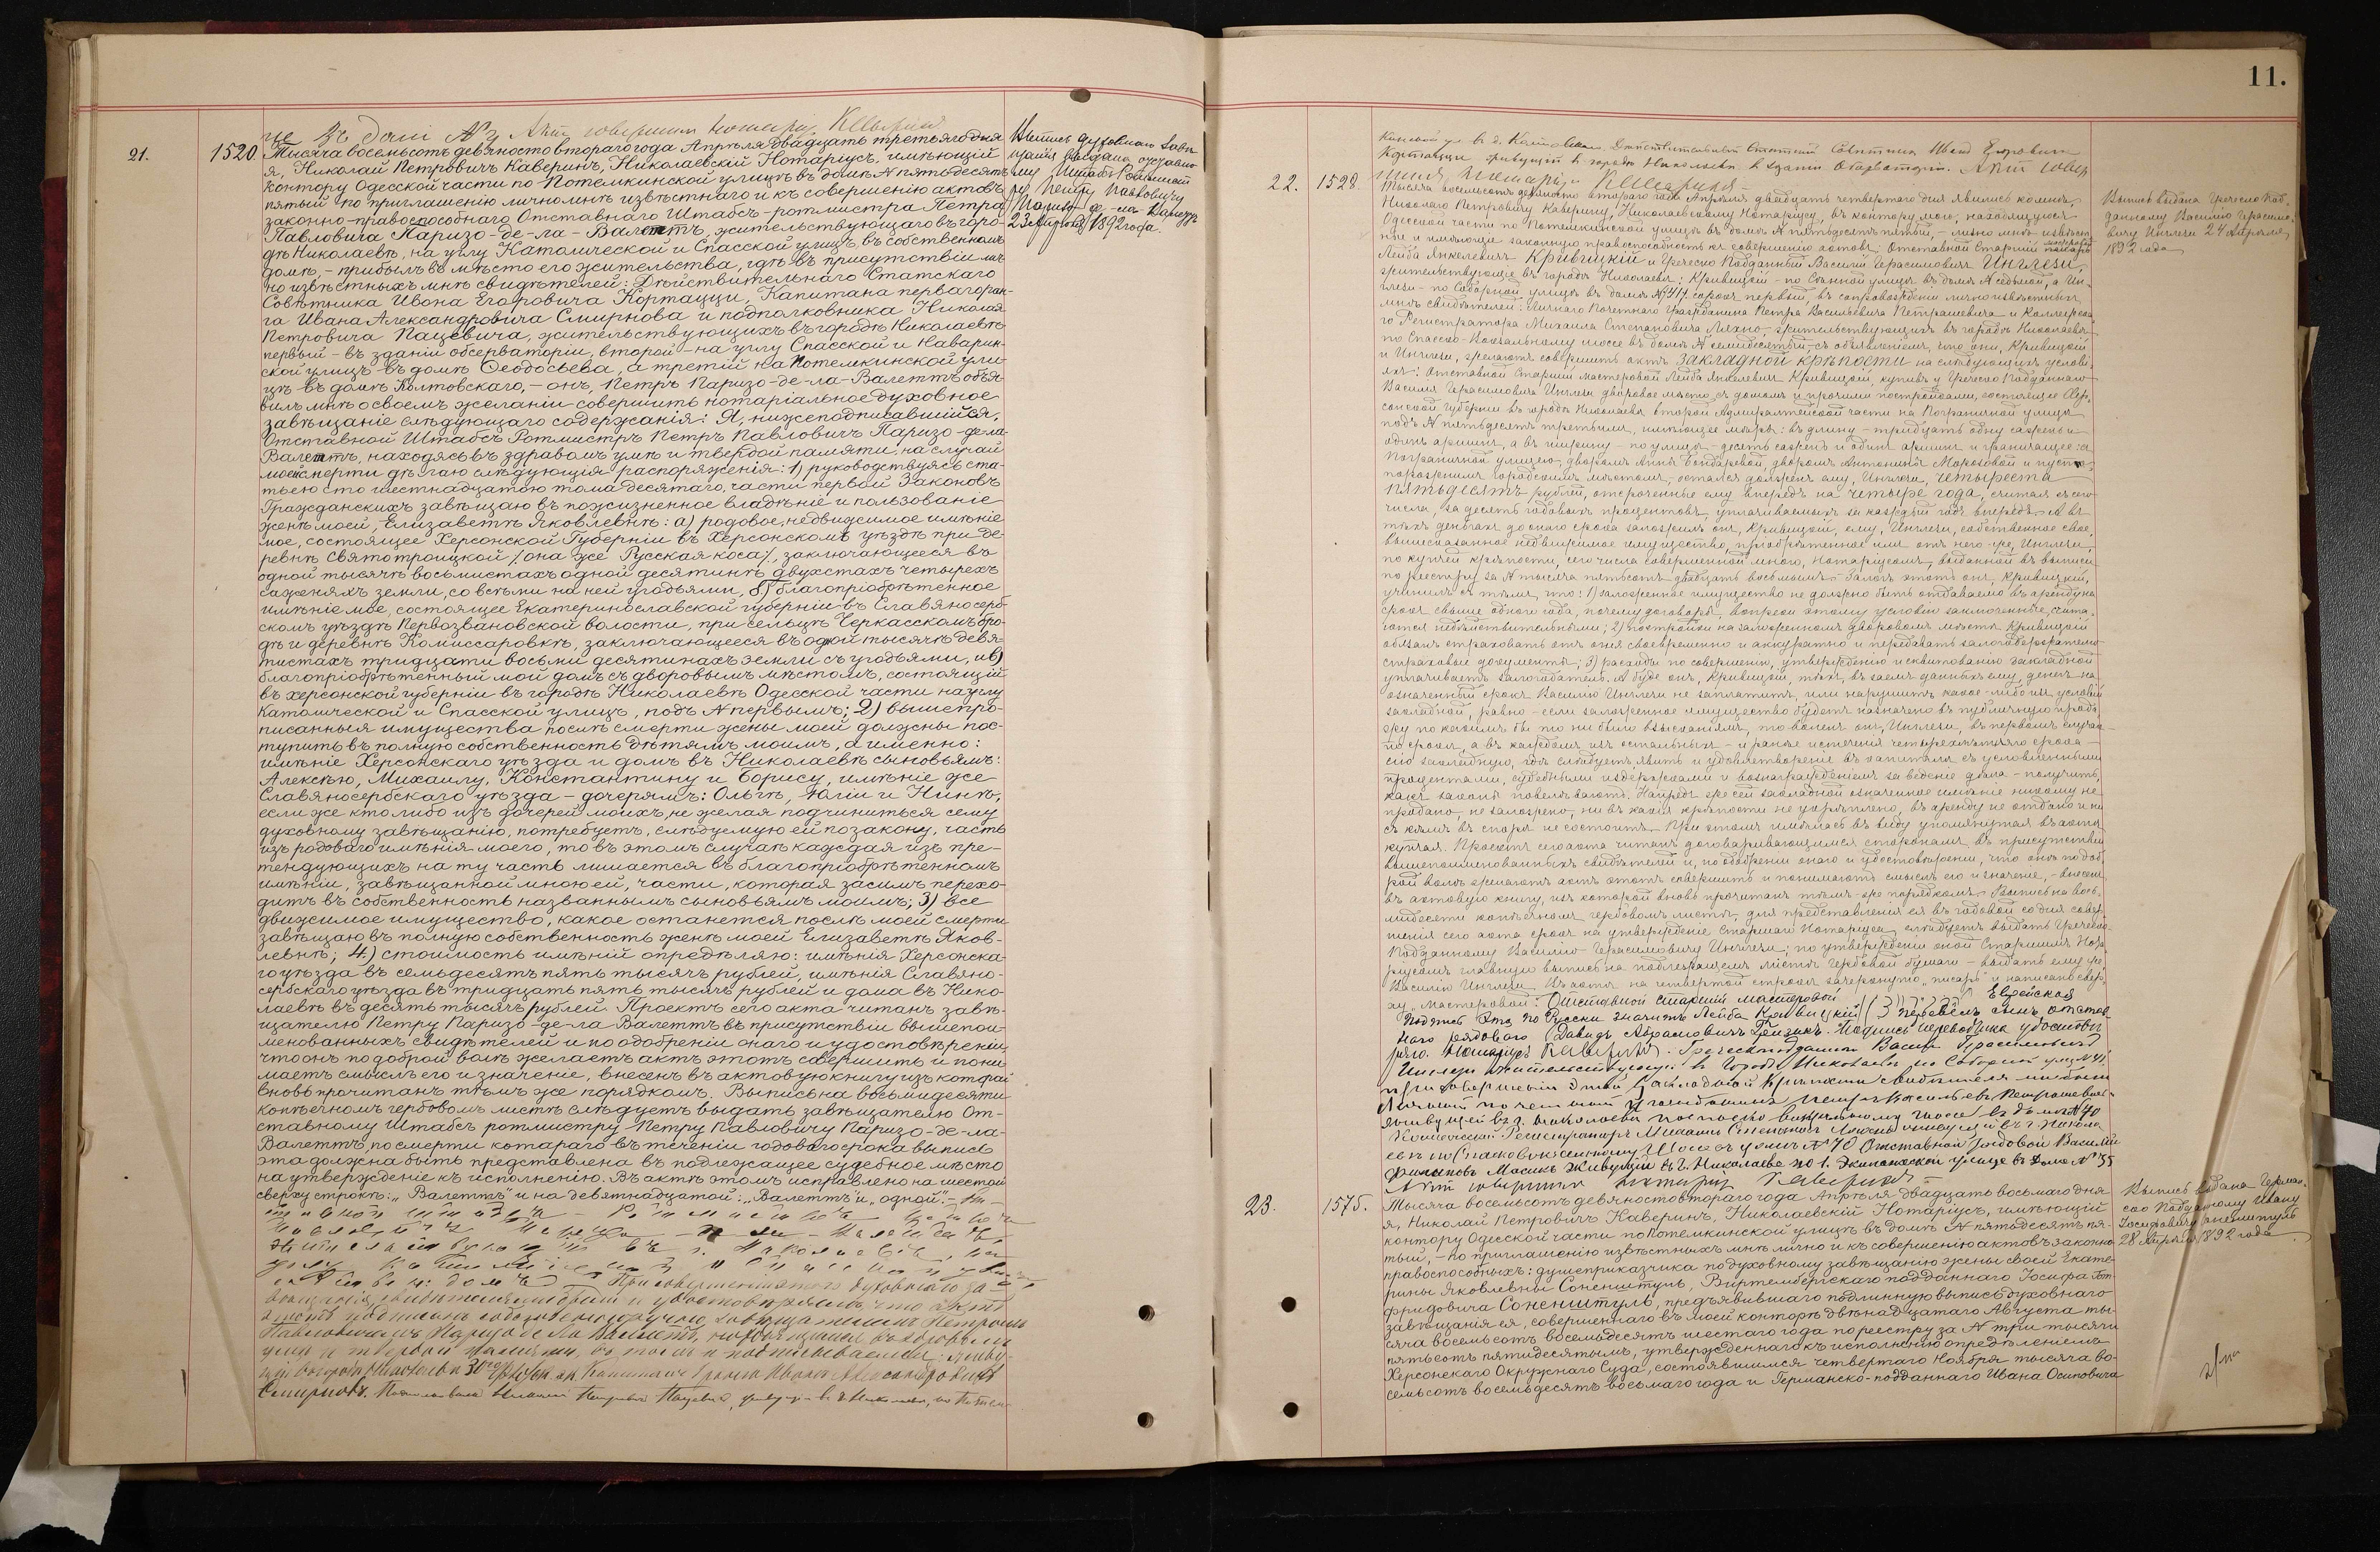 11.
це въ домѣ № Актъ совершилъ Нотаріусъ Каверинъ
21.
1520
Тысяча восемьсотъ девяносто второго года Апрѣля двадцать третьяго дня
я, Николай Петровичъ Каверинъ, Николаевскій Нотаріусъ, имѣющій
контору Одесской части по Потемкинской улицѣ въ домѣ № пятьдесятъ
пятый по приглашенію лично мнѣ извѣстнаго и къ совершенію актовъ
законно-правоспособнаго Отставнаго Штабсъ-ротмистра Петра
Павловича Паризо-де-ла-Валеттъ, жительствующаго въ горо-
дѣ Николаевѣ, на углу Католической и Спасской улицъ, въ собственномъ
домѣ, - прибылъ въ мѣсто его жительства, гдѣ въ присутствіи лич
но извѣстныхъ мнѣ свидѣтелей: Дѣйствительнаго Статскаго
Совѣтника Ивона Егоровича Кортацци, Капитана перваго ран-
га Ивана Александровича Смирнова и подполковника Николая
Петровича Пацевича, жительствующихъ въ городѣ Николаевѣ
первый - въ зданіи обсерваторіи, второй - на углу Спасской и Наварин-
ской улицъ въ домѣ Ѳеодосьева, а третій на Потемкинской ули-
цѣ въ домѣ Колтовскаго, - онъ, Петръ Паризо-де-ла-Валеттъ объя-
вилъ мнѣ о своемъ желаніи совершить нотаріальное духовное
завѣщаніе слѣдующаго содержанія: Я, нижеподписавшійся,
Отставной Штабсъ Ротмистръ Петръ Павловичъ Паризо-де-ла-
Валеттъ, находясь въ здравомъ умѣ и твердой памяти, на случай
моей смерти дѣлаю слѣдующія распоряженія: 1) руководствуясь ста-
тьею сто шестнадцатою тома десятаго, части первой Законовъ
Гражданскихъ завѣщаю въ пожизненное владѣніе и пользованіе
женѣ моей, Елизаветѣ Яковлевнѣ: а) родовое, недвижимое имѣніе
мое, состоящее Херсонской Губерніи въ Херсонскомъ уѣздѣ при де-
ревнѣ Святотроицкой /она же Русская коса/, заключающееся въ
одной тысячѣ восьмистахъ одной десятинѣ двухстахъ четырехъ
саженяхъ земли, со всѣми на ней угодьями, б) благопріобрѣтенное
имѣніе мое, состоящее Екатеринославской губерніи въ Славяносерб-
скомъ уѣздѣ Первозвановской волости, при сельцѣ Черкасскомъ бро-
дѣ и деревнѣ Комиссаровкѣ, заключающееся въ одной тысячѣ девя-
тистахъ тридцати восьми десятинахъ земли съ угодьями, и в)
благопріобрѣтенный мой домъ съ дворовымъ мѣстомъ, состоящій
въ херсонской губерніи въ городѣ Николаевѣ Одесской части на углу
Католической и Спасской улицъ, подъ № первымъ; 2) вышепро-
писанныя имущества послѣ смерти жены моей должны пос-
тупить въ полную собственность дѣтямъ моимъ, а именно:
имѣніе Херсонскаго уѣзда и домъ въ Николаевѣ сыновьямъ:
Алексѣю, Михаилу, Константину и Борису, имѣніе же
Славяносербскаго уѣзда - дочерямъ: Ольгѣ, Югіи и Нинѣ,
если же кто либо изъ дочерей моихъ, не желая подчиниться сему
духовному завѣщанію, потребуетъ, слѣдуемую ей по закону, часть
изъ родоваго имѣнія моего, то въ этомъ случаѣ каждая изъ пре-
тендующихъ на ту часть лишается въ благопріобрѣтенномъ
имѣніи, завѣщанной мною ей, части, которая засимъ перехо-
дитъ въ собственность названнымъ сыновьямъ моимъ; 3) все
движимое имущество, какое останется послѣ моей смерти
завѣщаю въ полную собственность женѣ моей Елизаветѣ Яков-
левнѣ; 4) стоимость имѣній опредѣляю: имѣнія Херсонска-
го уѣзда въ семьдесятъ пять тысячъ рублей, имѣнія Славяно-
сербскаго уѣзда въ тридцать пять тысячъ рублей и дома въ Нико-
лаевѣ въ десять тысячъ рублей. Проектъ сего акта читанъ завѣ-
щателю Петру Паризо-де-ла-Валеттъ въ присутствіи вышепои-
менованныхъ свидѣтелей и по одобреніи онаго и удостовѣреніи,
что онъ по доброй волѣ желаетъ актъ этотъ совершить и пони
маетъ смыслъ его и значеніе, внесенъ въ актовую книгу изъ которой
вновь прочитанъ тѣмъ же порядкомъ. Выпись на восьмидесяти
копѣечномъ гербовомъ листѣ слѣдуетъ выдать завѣщателю От-
ставному Штабсъ ротмистру Петру Павловичу Паризо-де-ла-
Валеттъ, по смерти котораго въ теченіи годоваго срока выпись
эта должна быть представлена въ подлежащее судебное мѣсто
на утвержденіе къ исполненію. Въ актѣ этомъ исправлено на шестой
сверху строкѣ: „Валеттъ" и на девятнадцатой: „Валеттъ" и „одной".
При совершеніи этого духовнаго за-
вѣщанія, свидѣтелями были и удостовѣряемъ, что актъ
этотъ подписанъ собственноручно завѣщателемъ Петромъ
Павловичемъ Паризо де Ла Валеттъ, находящимся въ здоровомъ
умѣ и твердой памяти, въ томъ и подписываемся: живу-
Капитанъ 1 ранга Иванъ Александровичъ
Смирновъ. Подполковникъ Николай Петровичъ Пацевичъ, живущій въ г. Николаевѣ, по Потем
Выпись духовнаго завѣ
щанія выдана отставно
му Штабсъ Ротмист
ру Петру Павловичу
Паризо-де-ла-Валеттъ
23 Апрѣля 1892 года.
кинской ул. въ д. Колтовскаго. Дѣйствительный Статскій Совѣтникъ Ивонъ Егоровичъ
Кортацци живущій въ городѣ Николаевѣ въ зданіи Обсерваторіи. Актъ совер
шилъ Нотаріусъ Каверинъ
22.
1528.
Тысяча восемьсотъ девяносто втораго года Апрѣля двадцать четвертаго дня явились ко мнѣ,
Николаю Петровичу Каверину, Николаевскому Нотаріусу, въ контору мою, находящуюся
Одесской части по Потемкинской улицѣ въ домѣ № пятьдесятъ пятый, - лично мнѣ извѣст
ные и имѣющіе законную правоспособность къ совершенію актовъ: Отставной Старшій мастеровой писарь
Лейба Янкелевичъ Кривицкій и Греческо Подданный Василій Герасимовичъ Инглези,
жительствующіе въ городѣ Николаевѣ: Кривицкій - по Сѣнной улицѣ въ домѣ № седьмой, а Ин-
глези - по Соборной улицѣ въ домѣ № 41 сорокъ первый, въ сопровожденіи лично извѣстныхъ
мнѣ свидѣтелей: Личнаго Почетнаго Гражданина Петра Васильевича Петрашевича и Коллежска
го Регистратора Михаила Степановича Ляхно, жительствующихъ въ городѣ Николаевѣ
по Спасско-Вокзальному шоссе въ домѣ № семидесятый, съ объявленіемъ, что они, Кривицкій
и Инглези, желаютъ совершить актъ закладной крѣпости на слѣдующихъ услові
яхъ: Отставной Старшій мастеровой Лейба Янкелевичъ Кривицкій, купивъ у Греческо Подданнаго
Василія Герасимовича Инглези дворовое мѣсто съ домомъ и прочими постройками, состоящее Хер-
сонской Губерніи въ городѣ Николаевѣ второй Адмиралтейской части на Пограничной улицѣ
подъ № пятьдесятъ третьимъ, имѣющее мѣры: въ длину - тридцать одну сажень и
одинъ аршинъ, а въ ширину - по улицѣ - десять сажень и одинъ аршинъ и граничащее съ
Пограничной улицею, дворомъ Анны Бондаревой, дворомъ Антонины Морозовой и пусто-
порожнимъ Городскимъ мѣстомъ, остался долженъ ему, Инглези, четыреста
пятьдесятъ рублей, отсроченные ему впередъ на четыре года, считая съ сего
числа, за десять годовыхъ процентовъ, уплачиваемыхъ за каждый годъ впередъ. А въ
тѣхъ деньгахъ до онаго срока заложилъ онъ, Кривицкій, ему, Инглези, собственное свое,
вышесказанное недвижимое имущество, пріобрѣтенное имъ отъ него-же, Инглези,
по купчей крѣпости, сего числа совершенной мною, Нотаріусомъ, выданной въ выписи
по реестру за № тысяча пятьсотъ двадцать восьмымъ. Залогъ этотъ онъ, Кривицкій,
учинилъ съ тѣмъ, что: 1) заложенное имущество не должно быть отдаваемо въ аренду на
срокъ свыше одного года, почему договоры, вопреки этому условію заключенные, счита-
ются недѣйствительными; 2) постройки на заложенномъ дворовомъ мѣстѣ Кривицкій
обязанъ страховать отъ огня своевременно и аккуратно и передавать залогодержателю
страховые документы; 3) расходы по совершенію, утвержденію и сквитованію закладной
уплачиваетъ залогодатель. А буде онъ, Кривицкій, тѣхъ, въ заемъ данныхъ ему, денегъ на
означенный срокъ Василію Инглези не заплатитъ, или нарушитъ какое-либо изъ условій
закладной, равно - если заложенное имущество будетъ назначено въ публичную прода
жу по какимъ бы то ни было взысканіямъ, то воленъ онъ, Инглези, въ первомъ случаѣ -
по срокѣ, а въ каждомъ изъ остальныхъ - и ранѣе истеченія четырехлѣтняго срока -
сію закладную, гдѣ слѣдуетъ, явить и удовлетвореніе въ капиталѣ съ условленными
процентами, судебными издержками и вознагражденіемъ за веденіе дѣла - получить,
какъ законы повелѣваютъ. Напредь же сей закладной означенное имѣніе никому не
продано, не заложено, ни въ какія крѣпости не укрѣплено, въ аренду не отдано и ни
съ кѣмъ въ спорѣ не состоитъ. При этомъ имѣлась въ виду упомянутая въ актѣ
купчая. Проектъ сего акта читанъ договаривающимся сторонамъ въ присутствіи
вышепоименованныхъ свидѣтелей и, по одобреніи онаго и удостовѣреніи, что онѣ по доб
рой волѣ желаютъ актъ этотъ совершить и понимаютъ смыслъ его и значеніе, - внесенъ
въ актовую книгу, изъ которой вновь прочитанъ тѣмъ-же порядкомъ. Выпись на вось-
мидесяти копѣечномъ гербовомъ листѣ, для представленія ея въ годовой со дня совер-
шенія сего акта срокъ на утвержденіе Старшаго Нотаріуса, слѣдуетъ выдать Греческо-
Подданному Василію Герасимовичу Инглези; по утвержденіи оной Старшимъ Нота
ріусомъ главную выпись на подлежащемъ листѣ гербовой бумаги - выдать ему же
Василію Инглези. Въ актѣ на четвертой строкѣ зачеркнуто „писарь" и написано сверх
ху „мастеровой". Отставной старшій мастеровой Еврейская
подпись эта по Русски значитъ Лейба Кривицкій перевелъ сынъ отстав
наго рядоваго Давидъ Абрамовичъ Подпись переводчика удостовѣ
ряю. Нотаріусъ Каверинъ. Греческоподданный Василій Герасимовичъ
Инглези жительствующій въ городѣ Николаевѣ по Соборной улиц. № 41.
при совершеніи этой Закладной Крѣпости свидѣтелями были
Личный почетный гражданинъ Петръ Васильевъ Петрашевичъ
живущій въ г. Николаевѣ по Спаско Вокзальному шоссе въ домѣ № 70
Коллежскій Регистраторъ Михаилъ Степановъ Ляхно живущій въ г. Никола
евѣ по Спасковокзальному Шоссе въ домѣ № 70 Отставной Рядовой Василій
Филиповъ Масикъ Живущій въ г. Николаеве по 1. Экипажеской улице въ Доме № 35
Актъ совершилъ Нотаріусъ Каверинъ
Выпись выдана Греческо Под-
данному Василію Герасимо-
вичу Инглези 24 Апрѣля
1892 года
23.
1575.
Тысяча восемьсотъ девяносто второго года Апрѣля двадцать восьмаго дня
я, Николай Петровичъ Каверинъ, Николаевскій Нотаріусъ, имѣющій
контору Одесской части по Потемкинской улицѣ въ домѣ № пятьдесятъ пя-
тый, - по приглашенію извѣстныхъ мнѣ лично и къ совершенію актовъ законно
правоспособныхъ: душеприказчика по духовному завѣщанію жены своей Екате-
рины Яковлевны Соненштуль, Виртембергскаго подданнаго Іосифа Гот-
фридовича Соненштуль, предъявившаго подлинную выпись духовнаго
завѣщанія ея, совершеннаго въ моей конторѣ двѣнадцатаго Августа ты-
сяча восемьсотъ восемьдесятъ шестаго года по реестру за № три тысячи
пятьсотъ пятидесятымъ, утвержденнаго къ исполненію опредѣленіемъ
Херсонскаго Окружнаго Суда, состоявшимся четвертаго Ноября тысяча во-
семьсотъ восемьдесятъ восьмаго года и Германско-подданнаго Ивана Осиповича
Выпись выдана Герман-
ско Подданному Ивану
Іосифовичу Зоненштуль
28 Апрѣля 1892 года